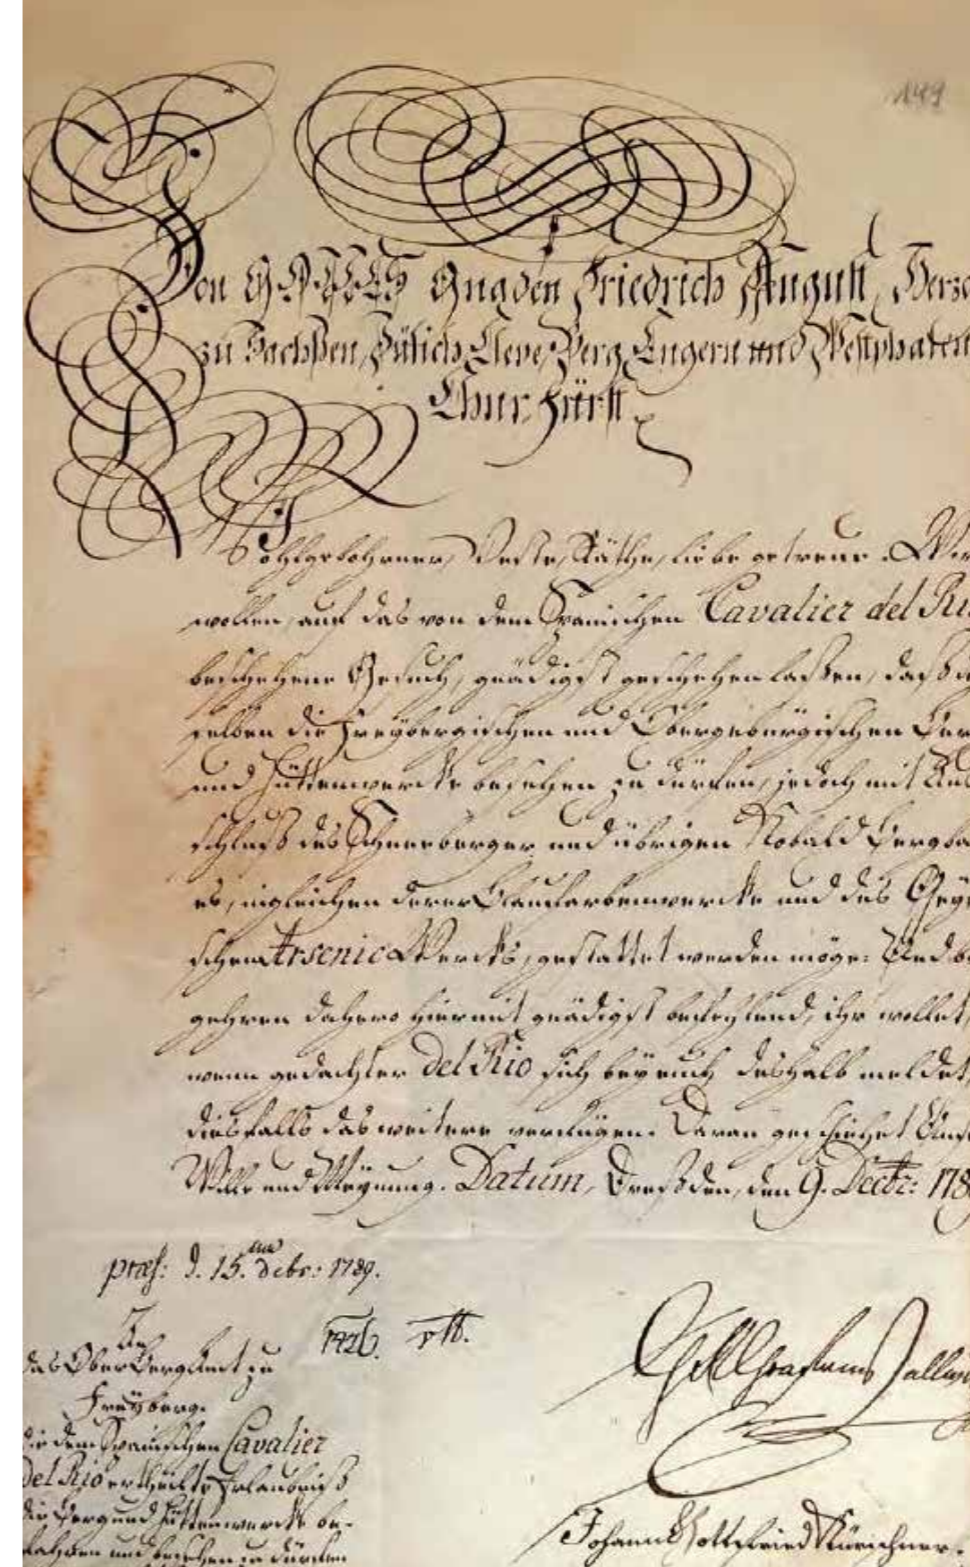 149
Von GOTTES Gnaden Friedrich August, Herzo
zu Sachßen, Jülich, Cleve, Berg, Engern und Westphalen
Chur-Fürst
Wohlgebohrner, Veste, Räthe, liebe getreue. Wir
wollen, auf das von dem Spanischen Cavalier del Ri
beschehene Gesuch, gnädigst geschehen laßen, daß
selben die Freybergischen und Obergebürgischen Ber
und Hüttenwercke besehen zu dürfen, jedoch mit Aus
schluß des Schneeberger und übrigen Kobald Bergba
es, ingleichen derer Blaufarbenwercke und des Geye
schen Arsenic Wercks, gestattet werden möge. Und be
gehren dahero hiermit gnädigst befehlend, ihr wollet,
wenn gedachter del Rio sich bey euch deshalb meldet,
diesfalls das weitere verfügen. Daran geschiehet Unse
Wille und Meynung. Datum, Dreßden, den 9. Decbr: 178
præs: d. 15. Xbr: 1789.
An
das OberBergAmt zu
Freyberg.
die dem Spanischen Cavalier
del Rio ertheilte Erlaubniß
die Berg und Hüttenwercke be-
fahren und besehen zu dürfen
Johann Gottfried